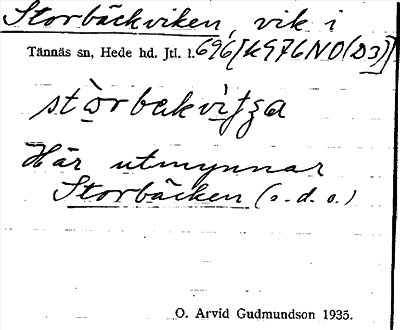 Storbäckviken, vik i
Tännäs sn, Hede hd. Jtl. l. 696 [k976NO(D3)]
stòrbakvìtʒa
Här utmynnar
Storbäcken (s.d.o.)
O. Arvid Gudmundson 1935.